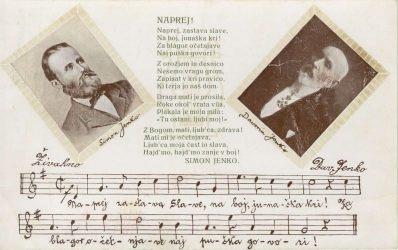 NAPREJ!
Naprej, zastava slave,
Na boj, junaška kri!
Za blagor očetnjave
Naj puška govori!
Z orožjem in desnico
Nesemo vragu grom,
Zapisat v kri pravico,
Ki terja jo naš dom.
Draga mati je prosila,
Roke okol' vrata vila,
Plakala je moja mila:
»Tu ostani, ljubi moj!«
Z Bogom, mati, ljub'ca, zdrava!
Mati mi je očetnjava,
Ljub'ca moja čast in slava,
Hajd'mo, hajd'mo zanje v boj!
SIMON JENKO.
Simon Jenko
Davorin Jenko
Živahno
Dav. Jenko
Na-prej za-sta-va sla-ve, na boj, ju-na-ška kri! Za
blag-or o-čet-nja-ve naj pu-ška go-vo-ri!